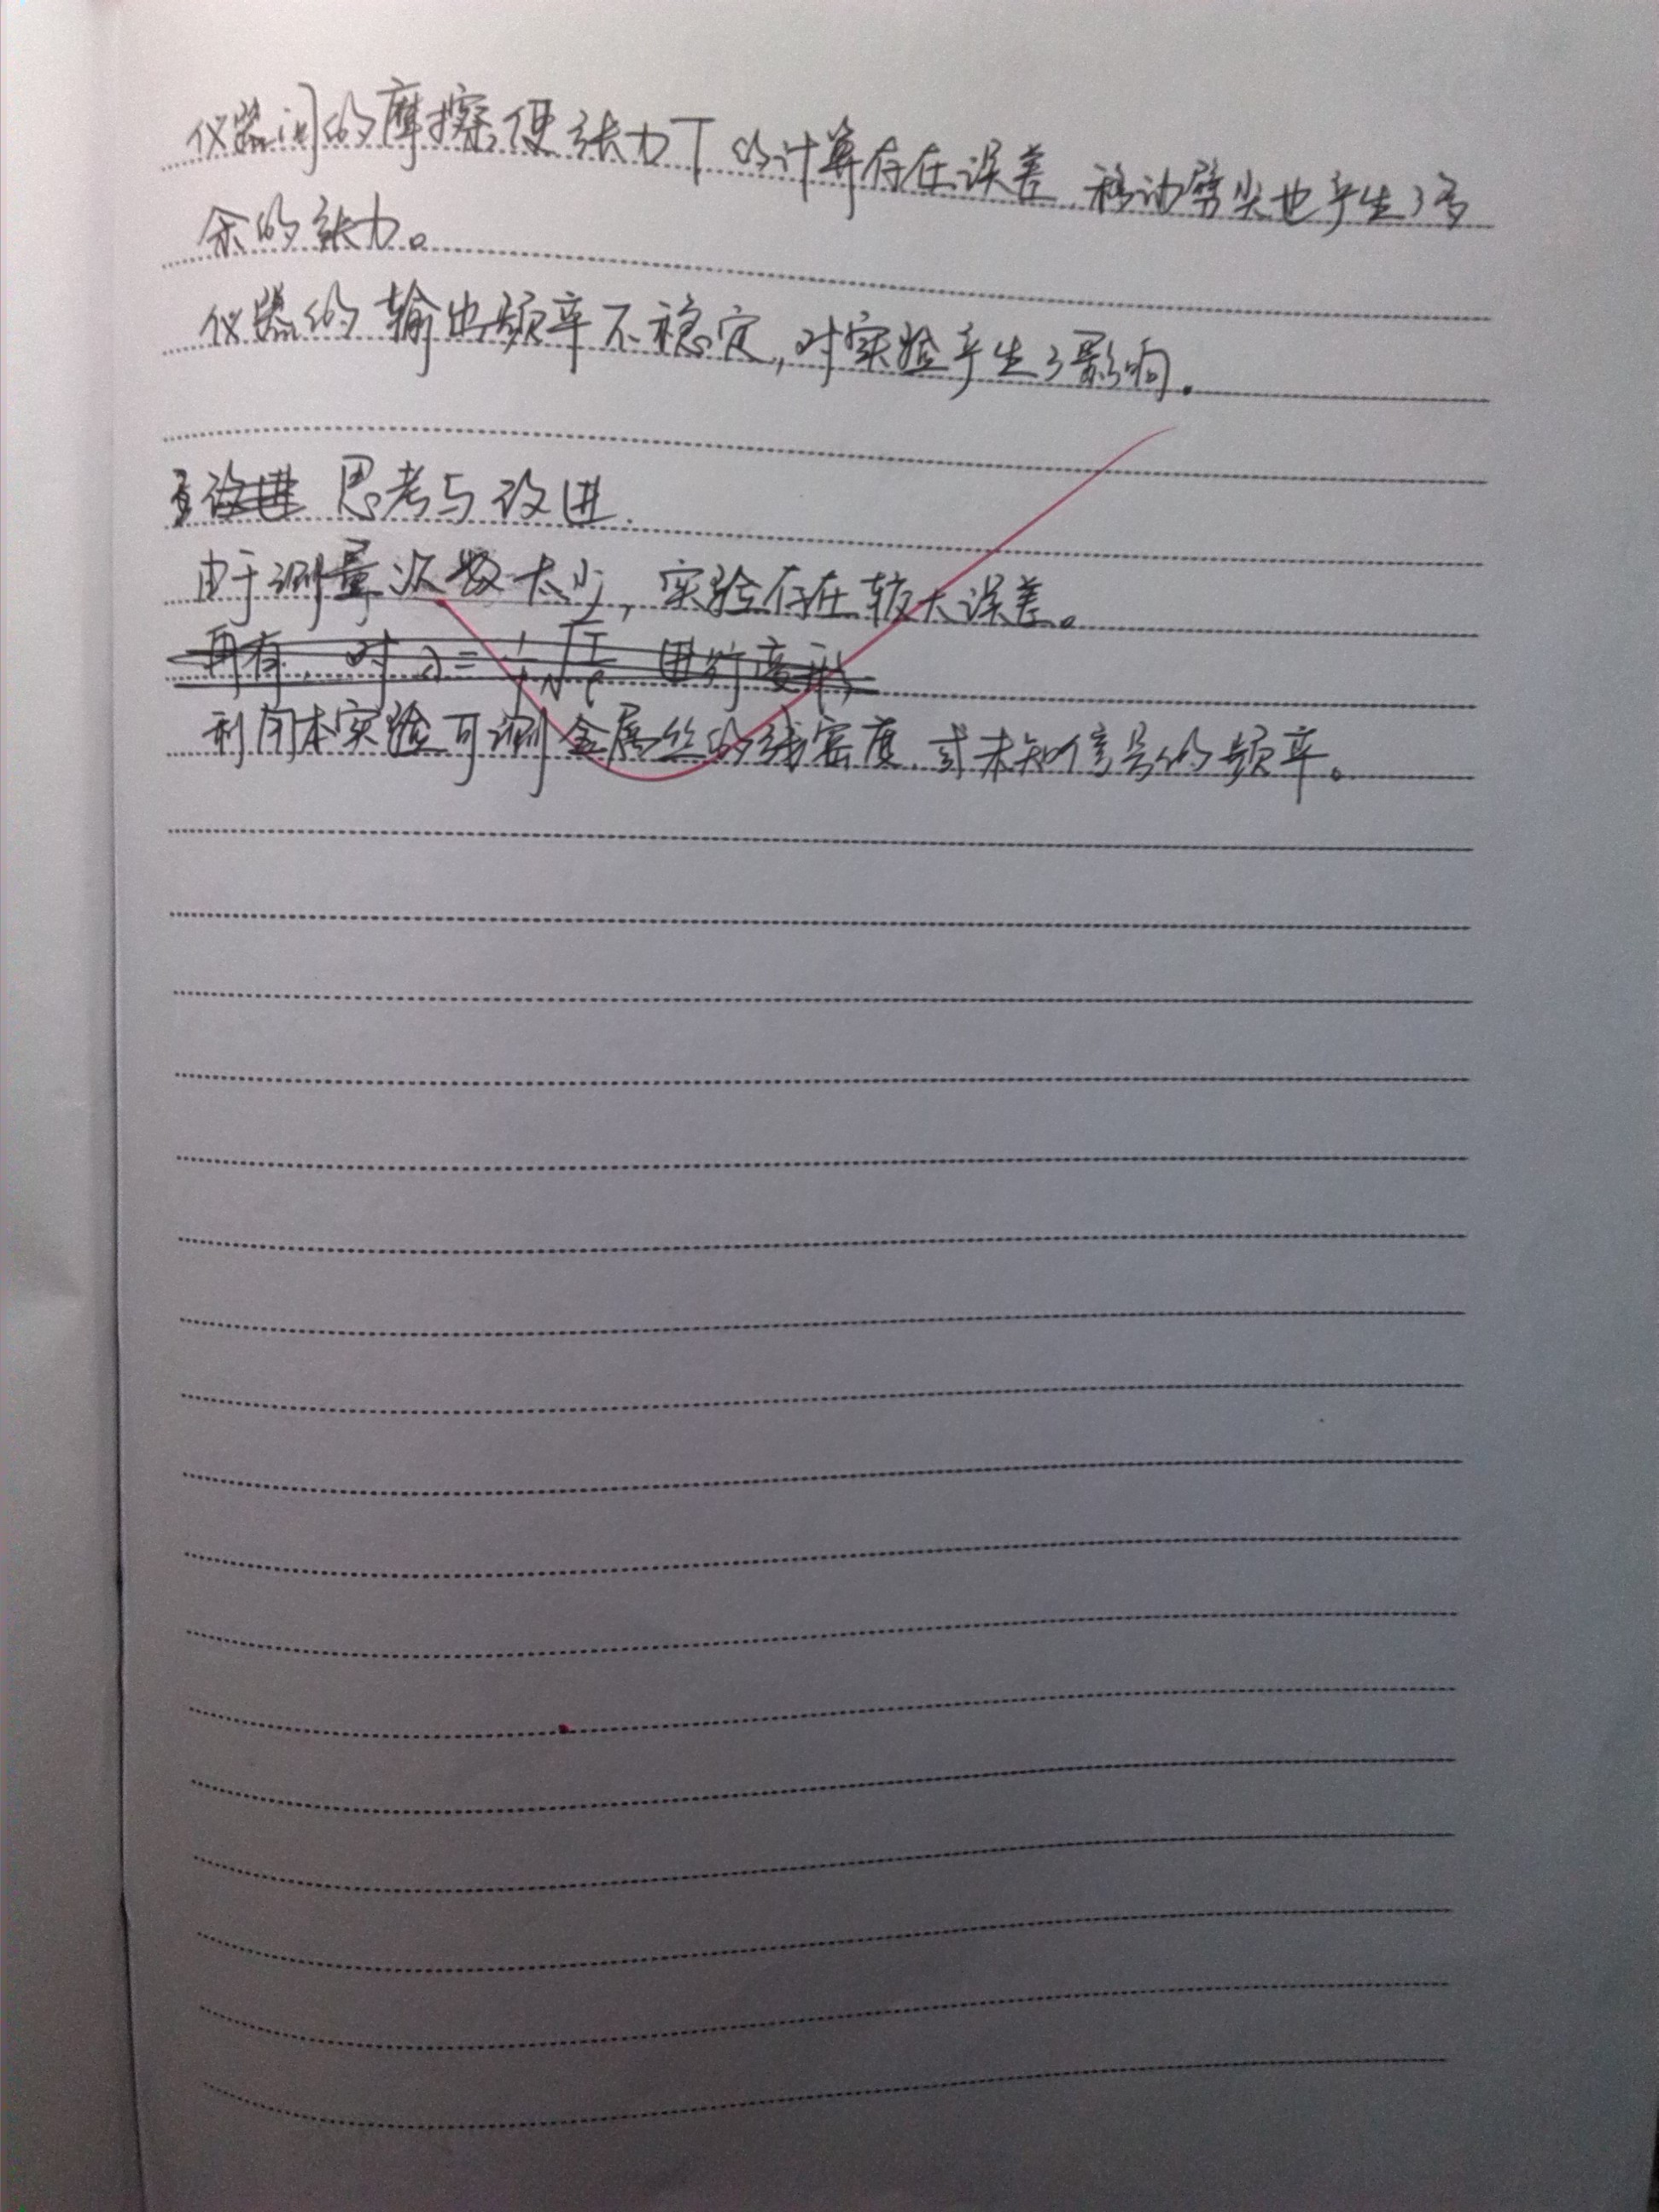 仪器间的摩擦使张力T的计算存在误差,移动劈尖也产生了多
余的张力。
仪器的输出频率不稳定,对实验产生了影响.
思考与改进.
由于测量次数太少,实验存在较大误差。
再有,对λ=1/f√T/ρ 进行变形,
利用本实验可测金属丝的线密度,或未知信号的频率。